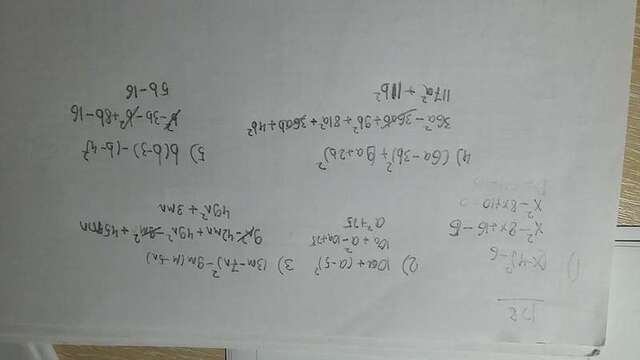 128
1) (x-4)²-6
x²-8x+16-6
x²-8x+10
2) 10a+(a-5)²
10a+a²-10a+25
a²+25
3) (3m-7n)²-9m(m-5n)
9m²-42mn+49n²-9m²+45mn
49n²+3mn
4) (6a-3b)²+(9a+2b)²
36a²-36ab+9b²+81a²+36ab+4b²
117a²+11b²
5) b(b-3)-(b-4)²
b²-3b-b²+8b-16
5b-16